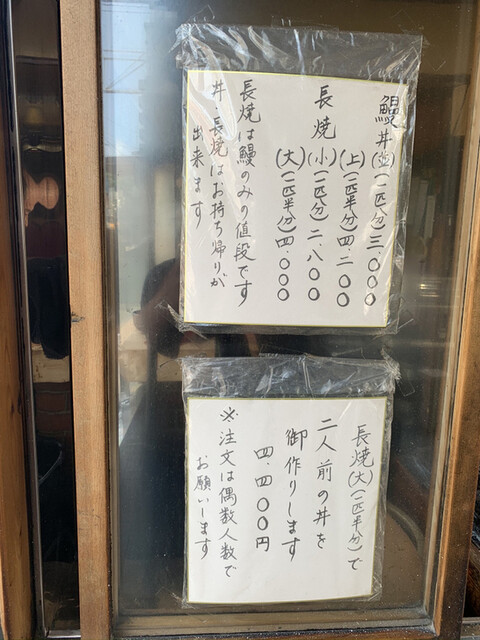 鰻丼(並)(一匹分)三.〇〇〇
(上)(一匹半分)四.二〇〇
長焼(小)(一匹分)二.八〇〇
(大)(一匹半分)四.〇〇〇
長焼は鰻のみの値段です
丼.長焼はお持ち帰りが
出来ます
長焼(大)(一匹半分)で
二人前の丼を
御作りします
四.四〇〇円
※注文は偶数人数で
お願いします